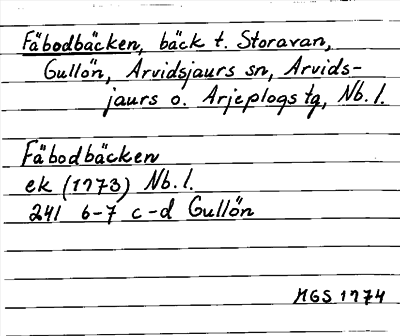 Fäbodbäcken, bäck t. Storavan,
Gullön, Arvidsjaurs sn, Arvids-
jaurs o. Arjeplogs tg, Nb. l.
Fäbodbäcken
ek (1973) Nb. l.
241 6-7 c-d Gullön
MGS 1974